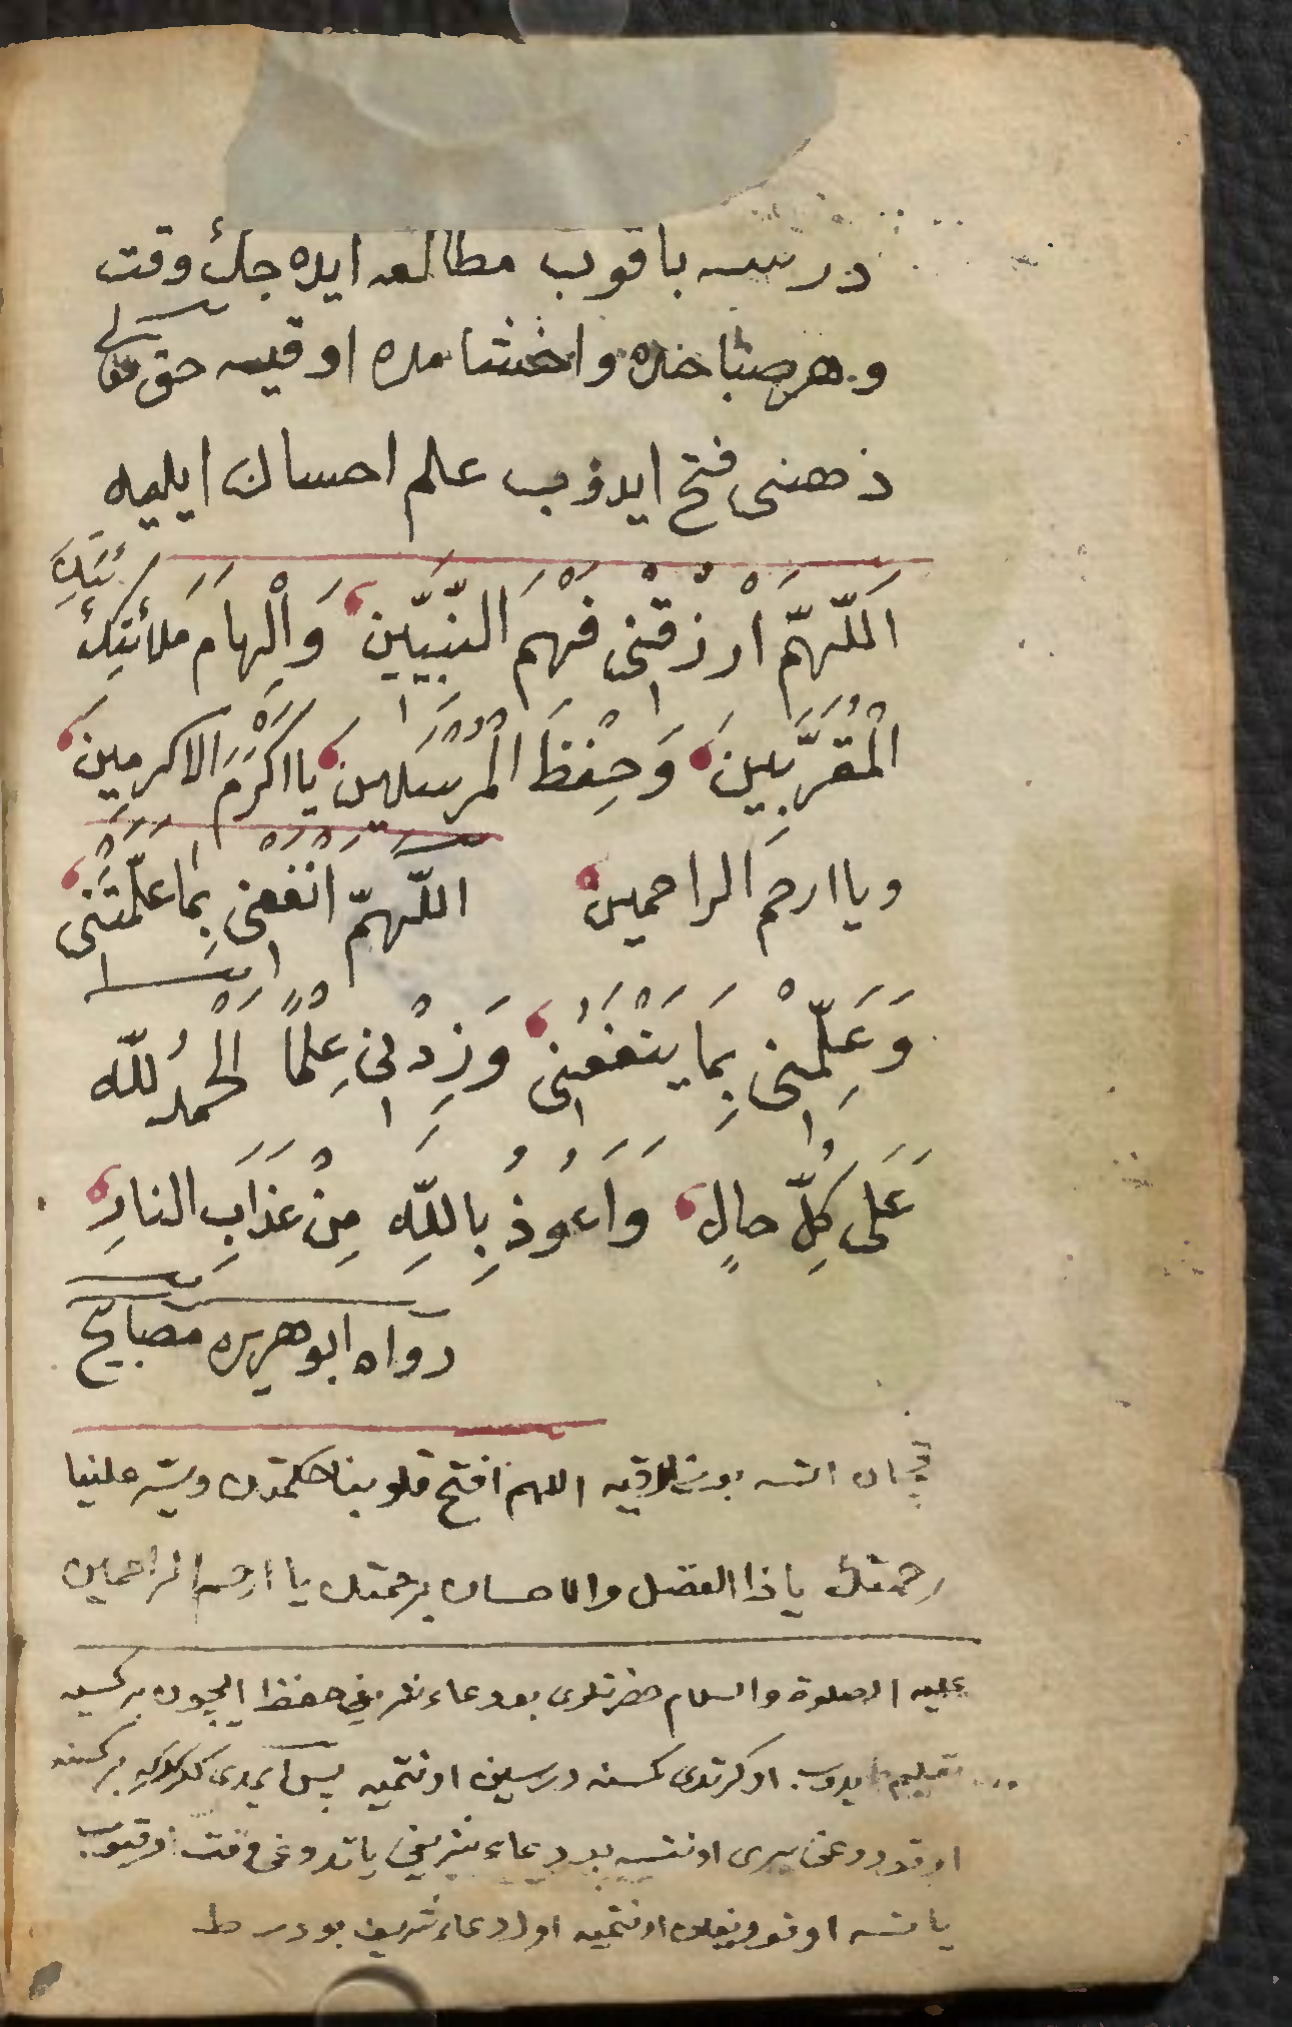 درسه باقوب مطالعه ايده جك وقت
و هر صباحده واخشامده اوقيه حق تعالى
ذهنى فتح ايدوب علم احسان ايليه
اَللّٰهمّ ارْزقْنى فَهْمَ النّبيّين وَاِلْهامَ ملائكتك
الْمُقَرَّبِينَ وَحِفْظَ الْمُرْسَلِين يا اكْرَمَ الاكرمِينَ
ويا ارحم الراحمين اللّٰهمّ انْفَعْنِى بِمَا عَلَّمْتَنى
وَعَلِّمْنِى بِمَا يَنْفَعُنِى وَزِدْنِى عِلْمًا الحمدُ للّٰه
عَلَى كُلِّ حالٍ وَاَعُوذُ بِاللّٰهِ مِنْ عَذَابِ النارِ
رواه ابو هريره مصابيح
اللهم افتح قلوبنا حكمتك ويسّر علينا
رحمتك ياذا الفضل والاحسان برحمتك يا ارحم الراحمين
عليه الصلوة والسلام حضرتلرى بو دعاء شريفى حفظ ايچون بر كسيه
تعليم ايدوب اوكرتدى كسنه درسين اونتميه پس ايمدى كركدركه بر كسنه
اوقودوغى اونتسه بو دعاء شريفى ياتدوغى وقت اوقيوب
ياتسه اوقودوغن اونتميه اول دعاء شريف بودر